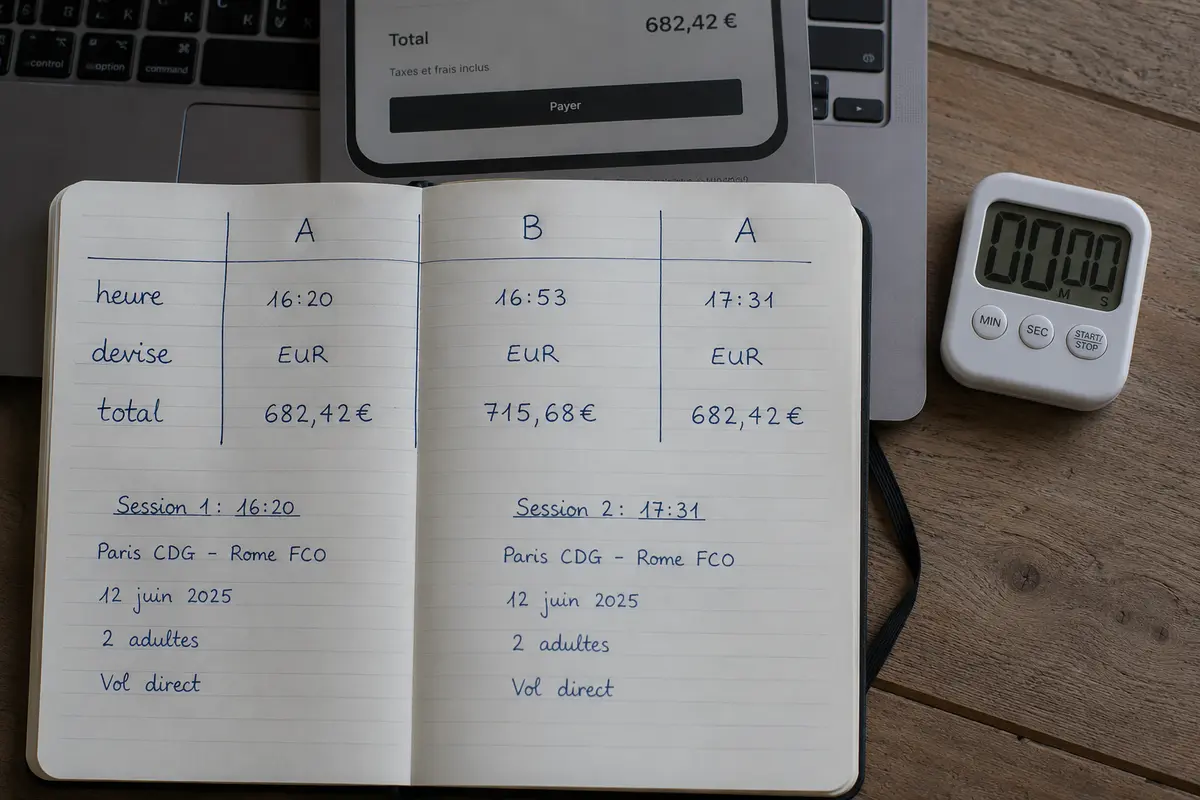 control
option
command
Total 682,42 €
Taxes et frais inclus
Payer
A B A
heure 16:20 16:53 17:31
devise EUR EUR EUR
total 682,42 € 715,68 € 682,42 €
Session 1: 16:20
Paris CDG - Rome FCO
12 juin 2025
2 adultes
Vol direct
Session 2: 17:31
Paris CDG - Rome FCO
12 juin 2025
2 adultes
Vol direct
00 00
M S
MIN SEC START/
STOP